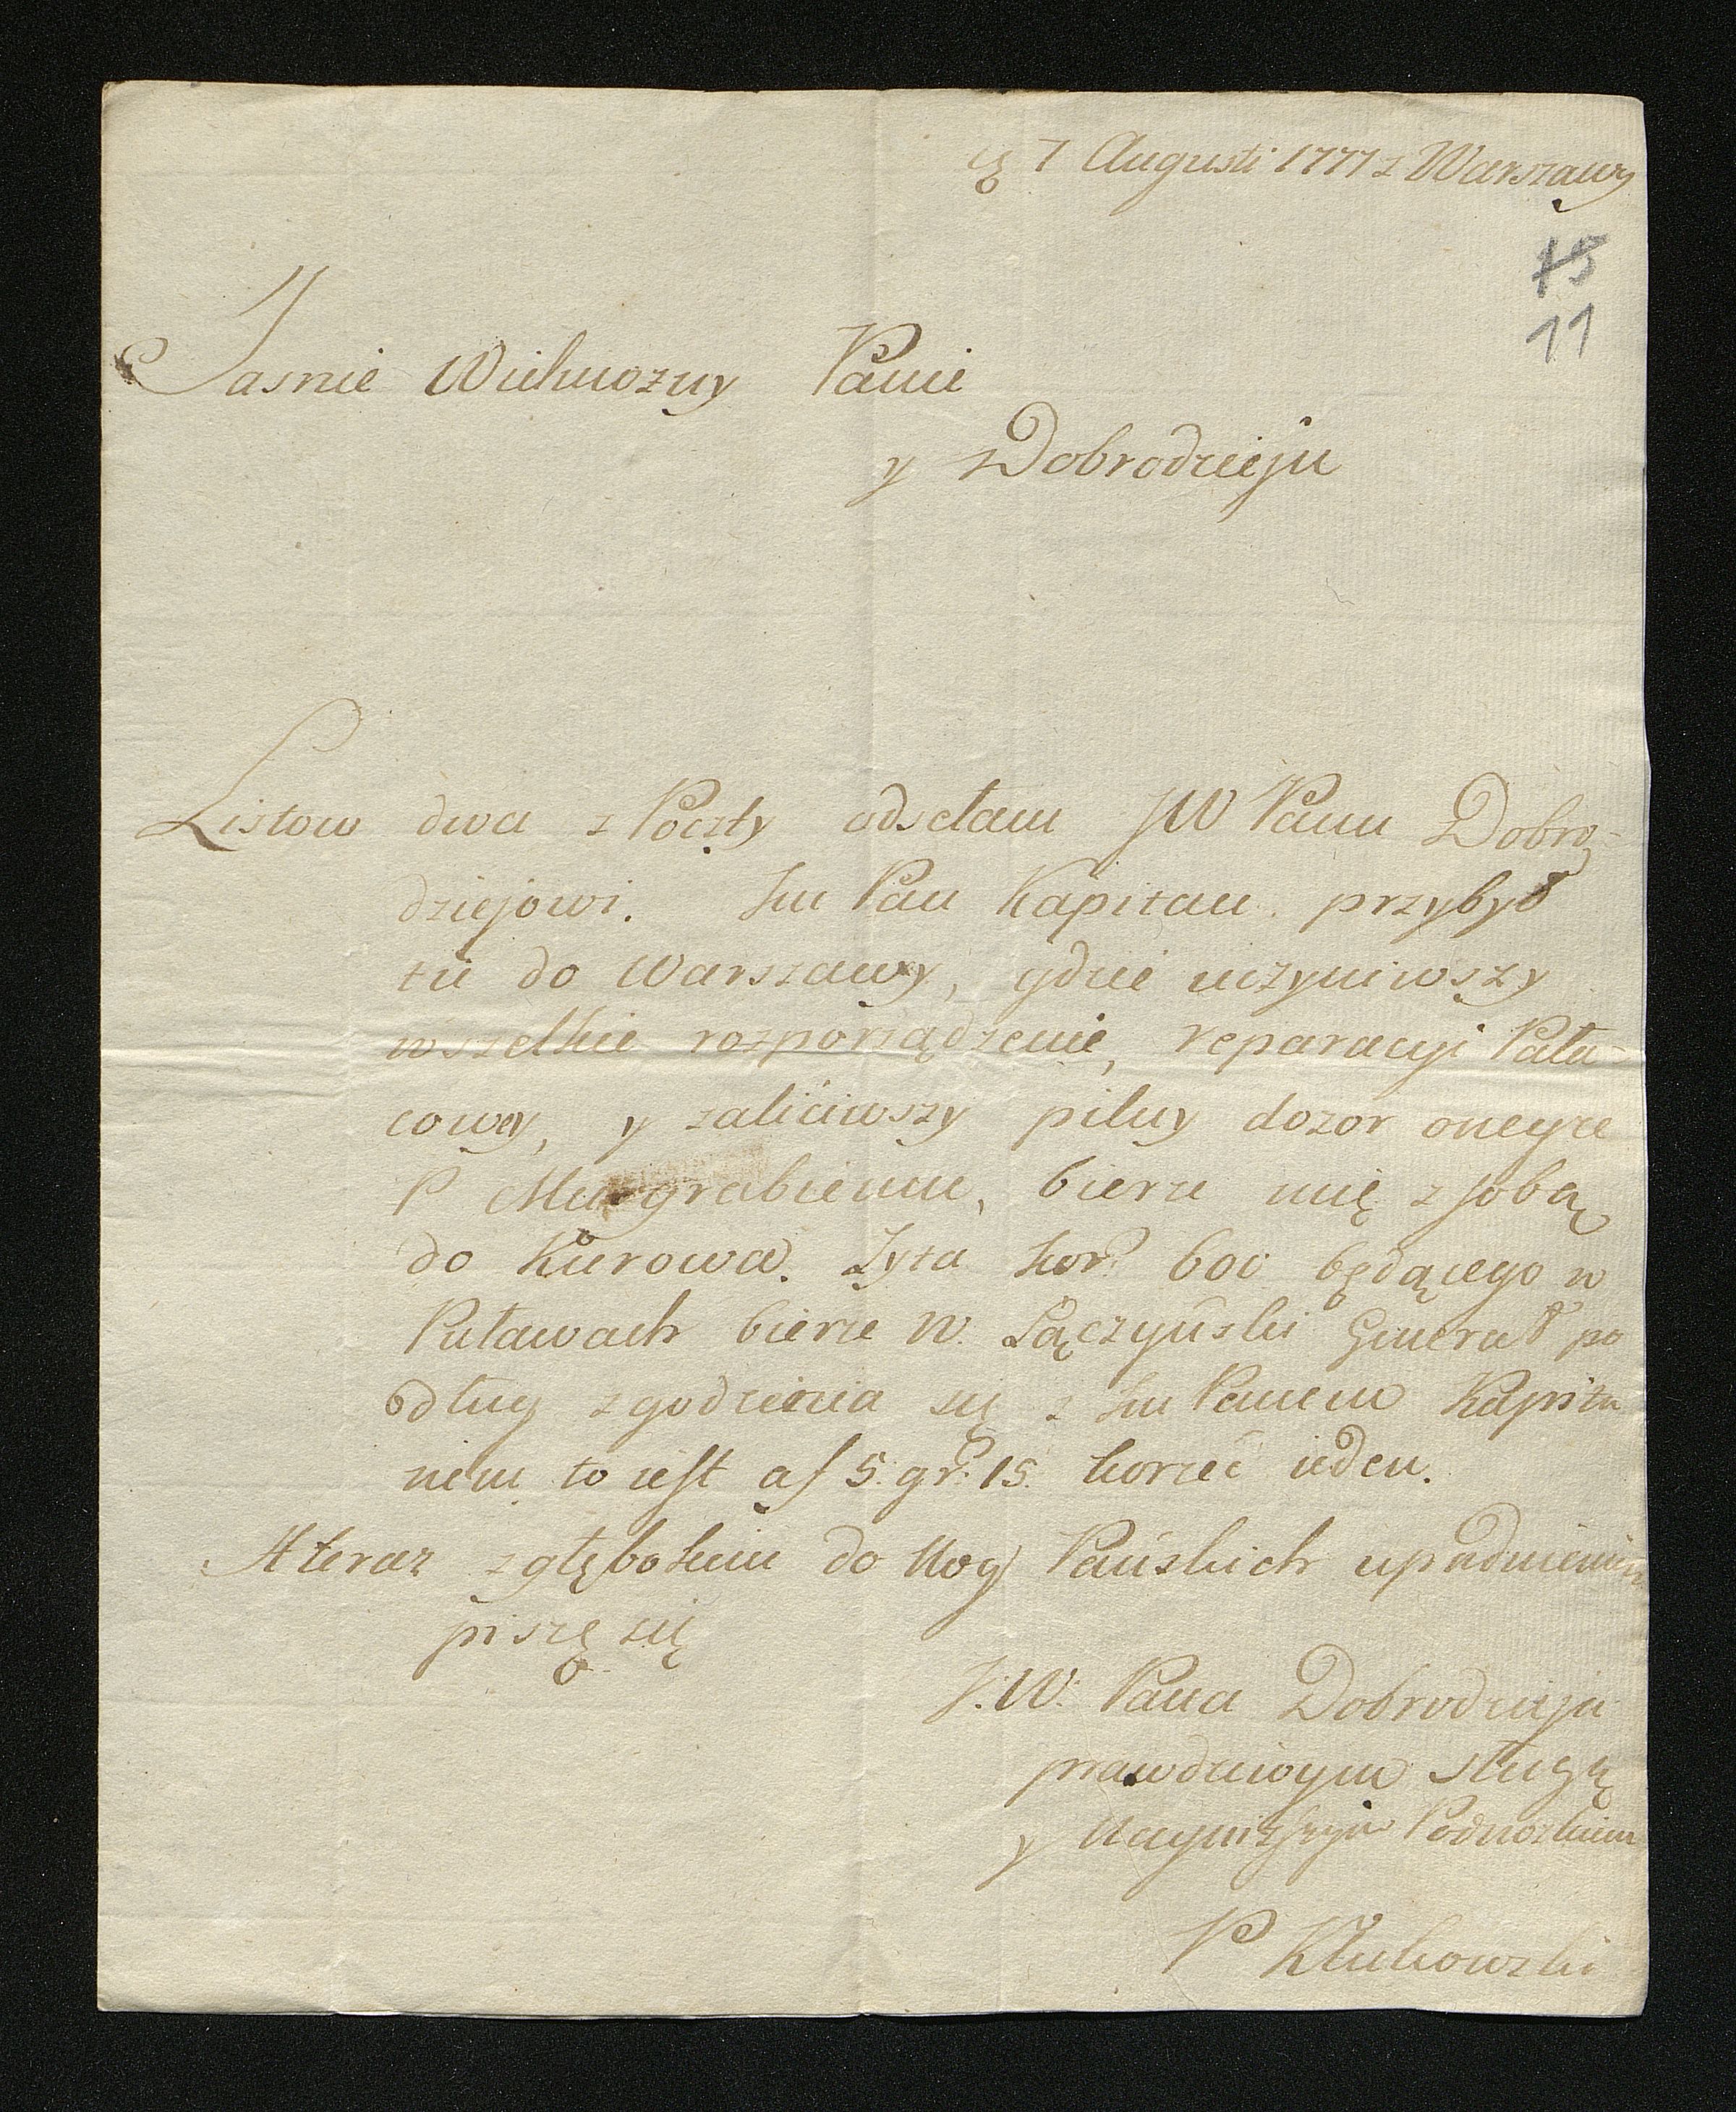 7 Augusti 1777 z Warszawy
15
11
Jasnie Wielmozny Panie
y Dobrodzieju
Listow dwa z Poczty odsełam JW Panu Dobro-
dziejowi. Im Pan Kapitan przybył
tu do Warszawy, gdzie uczyniwszy
wszelkie rozporządzenie, reparacyi Pała-
cowey, y zaliciwszy pilny dozor oneyze
P Murgrabiemu, bierze mię z sobą
do Kurowa. Zyta kor. 600 będącego w
Puławach bierze W. Łączyński Generał po
dług zgodzenia się z Im Panem Kapita
nem to iest af 5. gr. 15. korzec ieden.
A teraz z głębokim do Nog Pańskich upadnieniem
piszę się
J.W. Pana Dobrodzieja
prawdziwym sługą
y Nayniższym Podnozkiem
P Klukowski